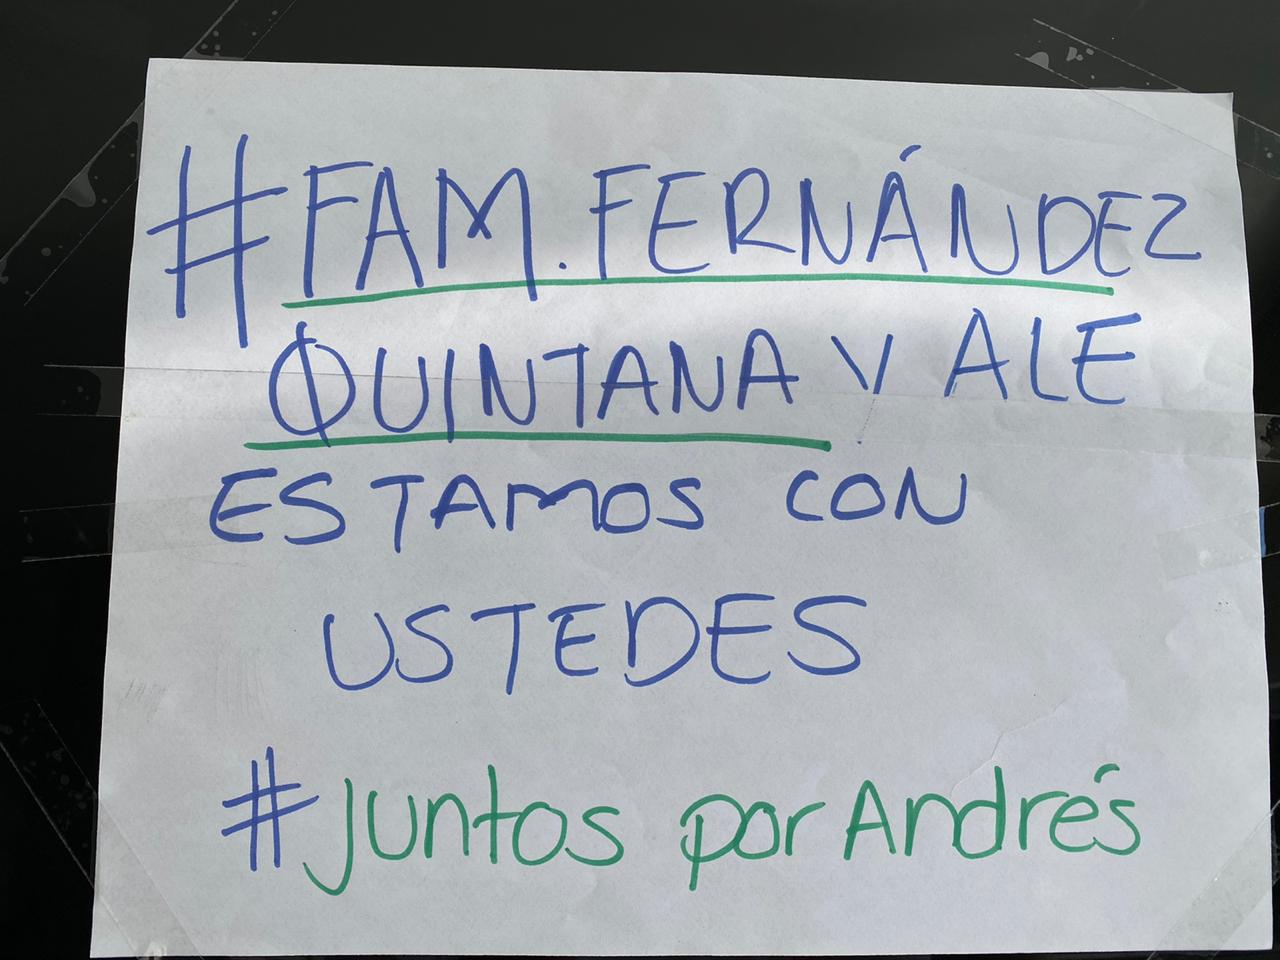 #FAM.FERNÁNDEZ
QUINTANA Y ALE
ESTAMOS CON
USTEDES
#Juntos por Andrés